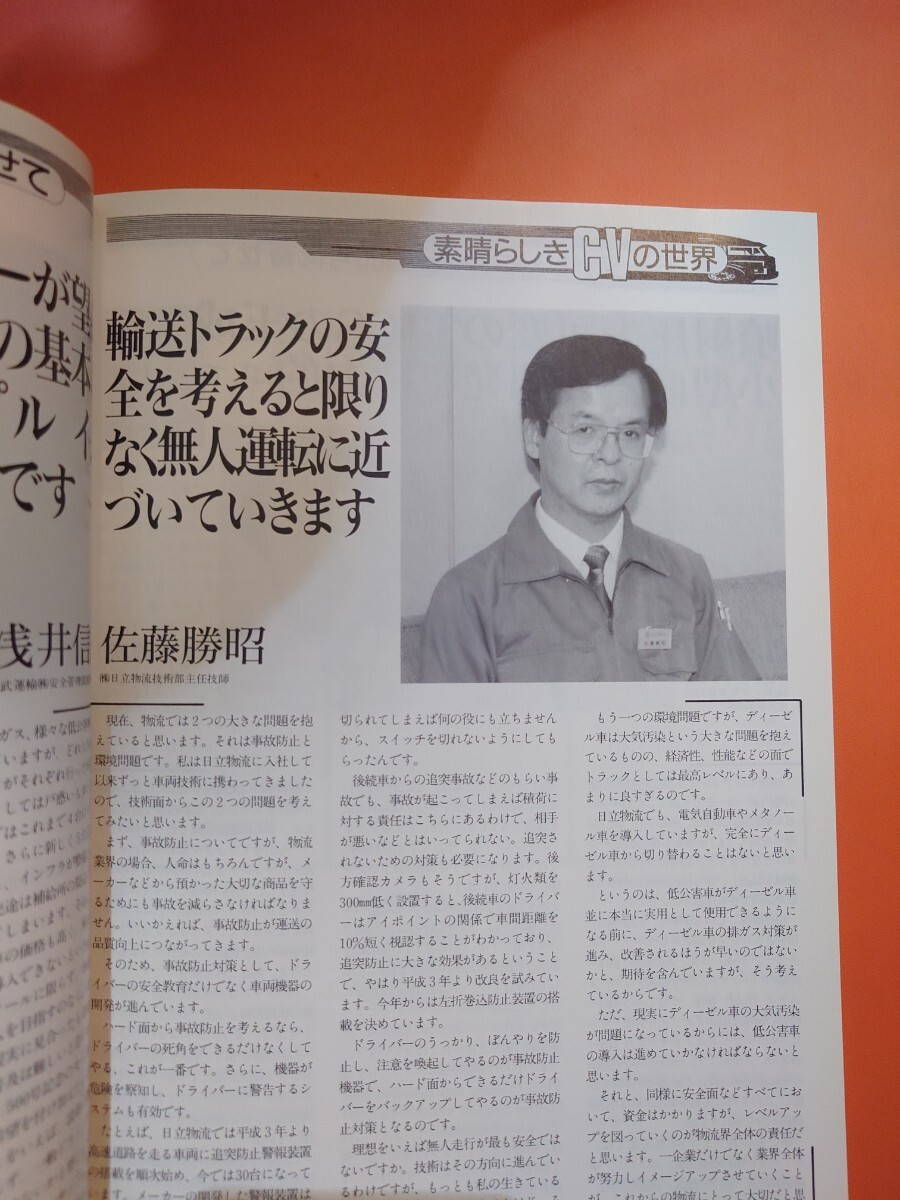 せて
ーが望
の基本
プル
です
浅井信
素晴らしきCVの世界
輸送トラックの安
全を考えると限り
なく無人運転に近
づいていきます
佐藤勝昭
㈱日立物流技術部主任技師
現在、物流では2つの大きな問題を抱
えていると思います。それは事故防止と
環境問題です。私は日立物流に入社して
以来ずっと車両技術に携わってきました
ので、技術面からこの2つの問題を考え
てみたいと思います。
まず、事故防止についてですが、物流
業界の場合、人命はもちろんですが、メ
ーカーなどから預かった大切な商品を守
るためにも事故を減らさなければなりま
せん。いいかえれば、事故防止が運送の
品質向上につながってきます。
そのため、事故防止対策として、ドラ
イバーの安全教育だけでなく車両機器の
開発が進んでいます。
ハード面から事故防止を考えるなら、
ドライバーの死角をできるだけなくして
やる、これが一番です。さらに、機器が
危険を察知し、ドライバーに警告するシ
ステムも有効です。
たとえば、日立物流では平成3年より
高速道路を走る車両に追突防止警報装置
の搭載を順次始め、今では30台になって
います。メーカーの開発した警報装置は
切られてしまえば何の役にも立ちません
から、スイッチを切れないようにしても
らったんです。
後続車からの追突事故などのもらい事
故でも、事故が起こってしまえば積荷に
対する責任はこちらにあるわけで、相手
が悪いなどとはいってられない。追突さ
れないための対策も必要になります。後
方確認カメラもそうですが、灯火類を
300mm低く設置すると、後続車のドライバ
ーはアイポイントの関係で車間距離を
10%短く視認することがわかっており、
追突防止に大きな効果があるということ
で、やはり平成3年より改良を試みてい
ます。今年からは左折巻込防止装置の搭
載を決めています。
ドライバーのうっかり、ぼんやりを防
止し、注意を喚起してやるのが事故防止
機器で、ハード面からできるだけドライ
バーをバックアップしてやるのが事故防
止対策となるのです。
理想をいえば無人走行が最も安全では
ないですか。技術はその方向に進んでい
るわけですが、もっとも私の生きている
もう一つの環境問題ですが、ディーゼ
ル車は大気汚染という大きな問題を抱え
ているものの、経済性、性能などの面で
トラックとしては最高レベルにあり、あ
まりに良すぎるのです。
日立物流でも、電気自動車やメタノー
ル車を導入していますが、完全にディー
ゼル車から切り替わることはないと思い
ます。
というのは、低公害車がディーゼル車
並に本当に実用として使用できるように
なる前に、ディーゼル車の排ガス対策が
進み、改善されるほうが早いのではない
かと、期待を含んでいますが、そう考え
ているからです。
ただ、現実にディーゼル車の大気汚染
が問題になっているからには、低公害車
の導入は進めていかなければならないと
思います。
それと、同様に安全面などすべてにお
いて、資金はかかりますが、レベルアッ
プを図っていくのが物流界全体の責任だ
と思います。一企業だけでなく業界全体
が努力しイメージアップさせていくこと
が、これからの物流にとって大切だと思